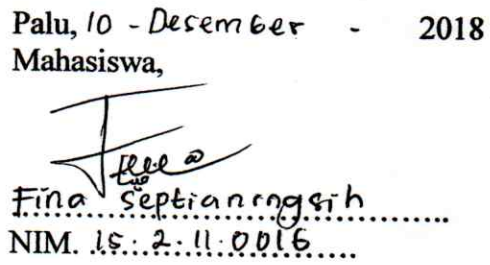 Palu, 10 - Desember - 2018
Mahasiswa,
Fina Septianingsih
NIM. 15.2.11.0016